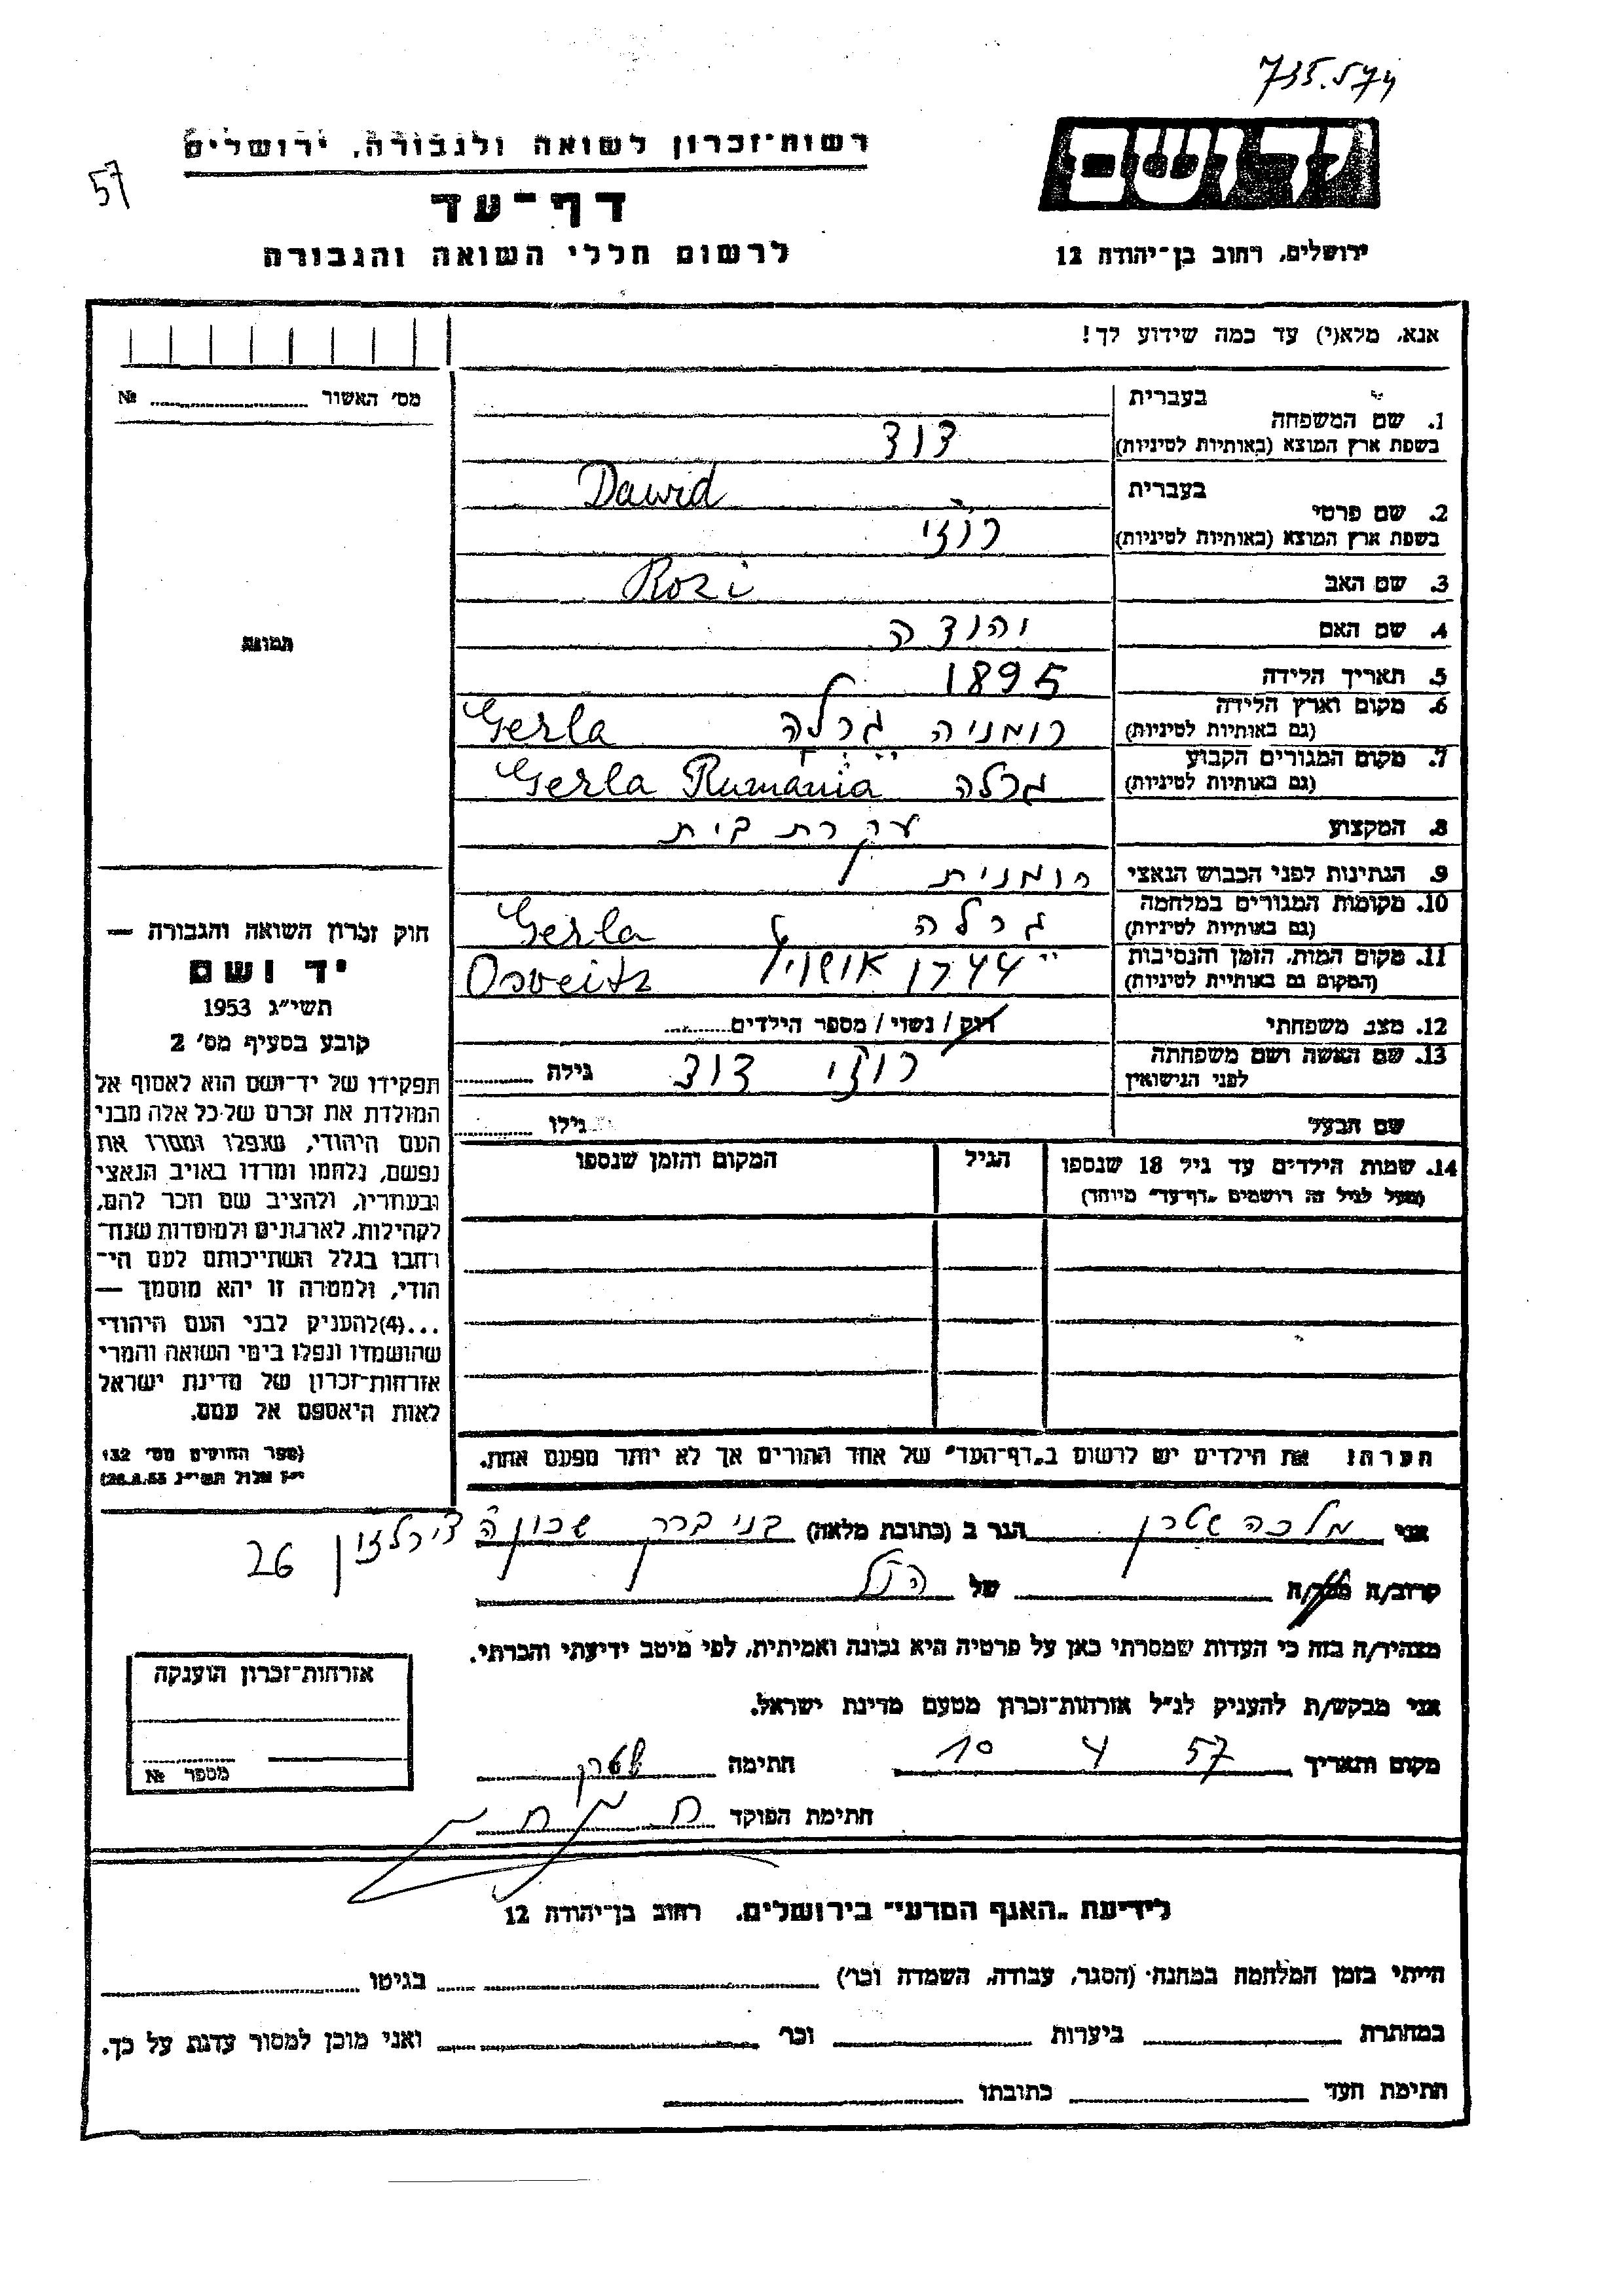 735.574
57
רשות־זכרון לשואה ולגבורה, ירושלים
דף־עד
לרשום חללי השואה והגבורה
יד ושם
ירושלים, רחוב בן־יהודה 12
אנא, מלא(י) עד כמה שידוע לך!
מס׳ האשור № 
1. שם המשפחה
בעברית
דוד
בשפת ארץ המוצא (באותיות לטיניות)
Dawid
2. שם פרטי
בעברית
רוזי
בשפת ארץ המוצא (באותיות לטיניות)
Rozi
3. שם האב
4. שם האם
יהודה
5. תאריך הלידה
1895
6. מקום וארץ הלידה
(גם באותיות לטיניות)
רומניה גרלה Gerla
7. מקום המגורים הקבוע
(גם באותיות לטיניות)
גרלה Gerla Rumania
8. המקצוע
עקרת בית
9. הנתינות לפני הכבוש הנאצי
רומנית
10. מקומות המגורים במלחמה
(גם באותיות לטיניות)
גרלה Gerla
11. מקום המות, הזמן והנסיבות
(המקום גם באותיית לטיניות)
1944 Osveitz
12. מצב משפחתי
רוק / נשוי / מספר הילדים
13. שם האשה ושם משפחתה
לפני הנישואין
רוזי דוד גילה
שם הבעל גילו
14. שמות הילדים עד גיל 18 שנספו
(מעל לגיל זה רושמים „דף־עד״ מיוחד)
הגיל
המקום והזמן שנספו
הערה: את הילדים יש לרשום ב„דף־העד״ של אחד ההורים אך לא יותר מפעם אחת.
תמונה
חוק זכרון השואה והגבורה —
יד ושם
תשי״ג 1953
קובע בסעיף מס׳ 2
תפקידו של יד־ושם הוא לאסוף אל
המולדת את זכרם של כל אלה מבני
העם היהודי, שנפלו ומסרו את
נפשם, נלחמו ומרדו באויב הנאצי
ובעוזריו, ולהציב שם וזכר להם,
לקהילות, לארגונים ולמוסדות שנח־
רבו בגלל השתייכותם לעם הי־
הודי, ולמטרה זו יהא מוסמך —
...(4)להעניק לבני העם היהודי
שהושמדו ונפלו בימי השואה והמרי
אזרחות־זכרון של מדינת ישראל
לאות היאספם אל עמם.
(ספר החוקים מס׳ 132
י״ז אלול תשי״ג 28.8.53)
אני מלכה שטרן הגר ב (כתובת מלאה) בני ברק שכון ה
26
קרוב/ה מכר/ה של הנ״ל
מצהיר/ה בזה כי העדות שמסרתי כאן על פרטיה היא נכונה ואמיתית, לפי מיטב ידיעתי והכרתי.
אני מבקש/ת להעניק לנ״ל אזרחות־זכרון מטעם מדינת ישראל.
מקום ותאריך 10 4 57 חתימה שטרן
חתימת הפוקד
אזרחות־זכרון הוענקה
מספר №
לידיעת „האגף המדעי״ בירושלים, רחוב בן־יהודה 12
הייתי בזמן המלחמה במחנה (הסגר, עבודה, השמדה וכו׳) בגיטו
במחתרת ביערות וכו׳ ואני מוכן למסור עדות על כך.
חתימת העד כתובתו